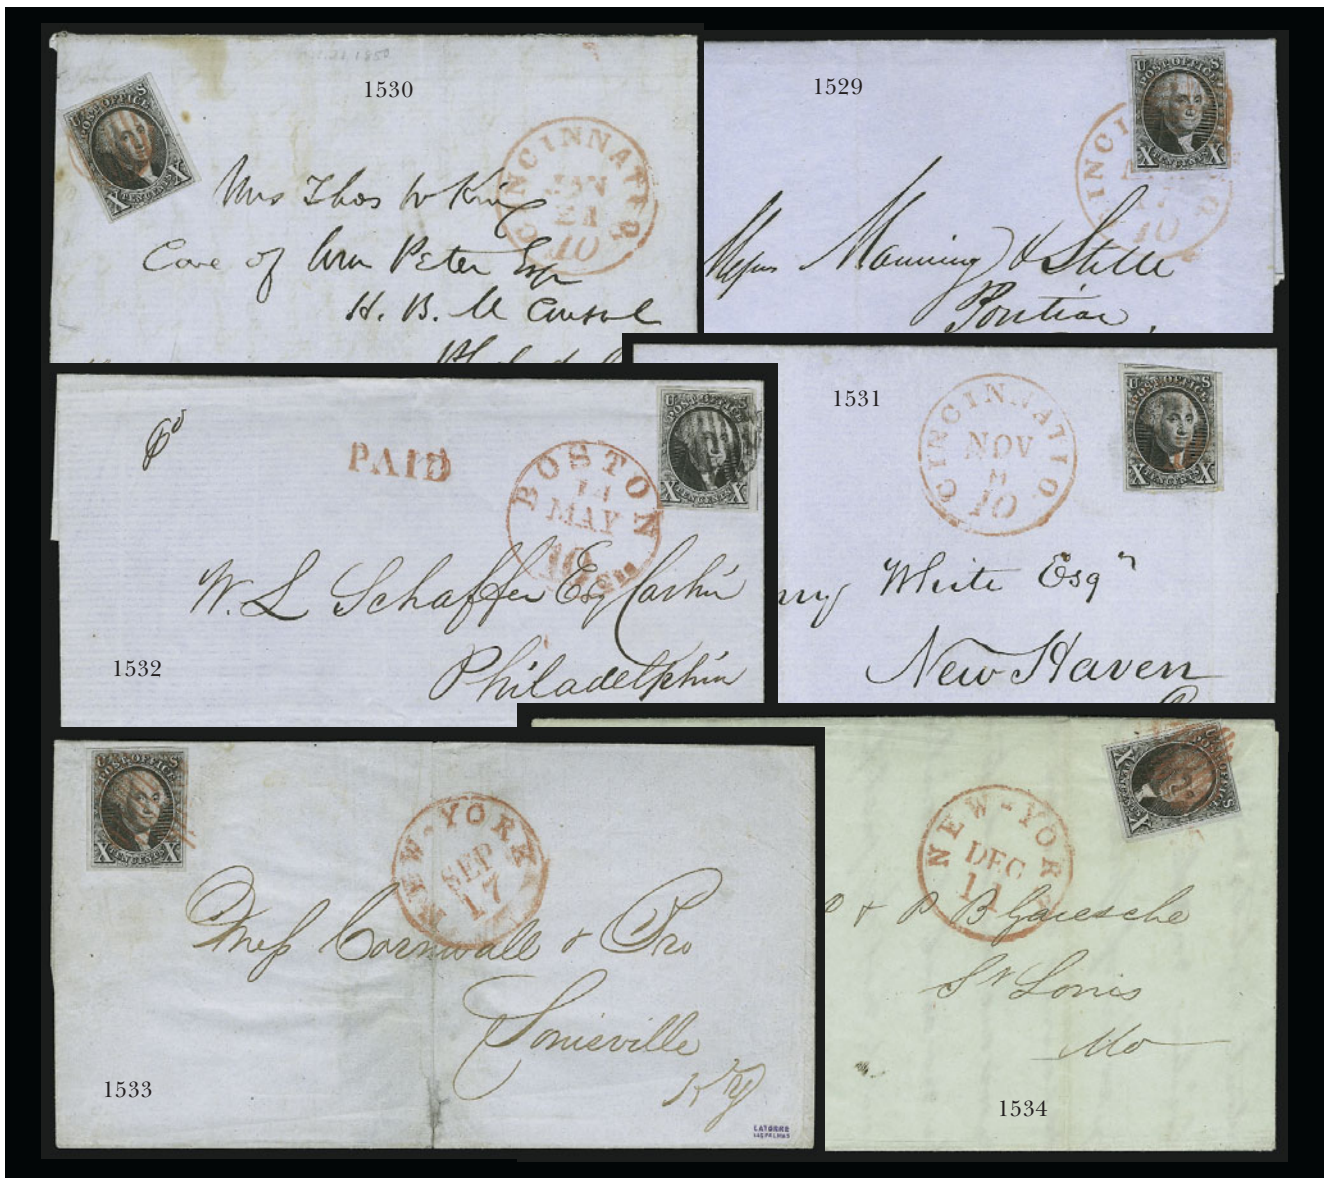 1530
U S
POST OFFICE
X TEN CENTS X
CINCINNATI O.
JAN
21
10
Mrs Thos W King
Care of Wm Peter Esqr
H. B. M Consul
1529
U S
POST OFFICE
X TEN CENTS X
CINCI
O.
10
Messrs Manning & Stille
Pontiac,
1532
PAID
BOSTON
14
MAY
10cts
U S
POST OFFICE
X TEN CENTS X
W. L Schaffer Esq Cashr
Philadelphia
1531
CINCINNATI O.
NOV
8
10
U S
POST OFFICE
X TEN CENTS X
ry White Esqr
New Haven
1533
U S
POST OFFICE
X TEN CENTS X
NEW-YORK
SEP
17
Mess Cornwall & Bro
Louisville
Ky
LATORRE
LAS PALMAS
1534
NEW-YOR
DEC
11
U S
POST OFFICE
X TEN CENTS X
& P B Gaiesche
St Louis
Mo